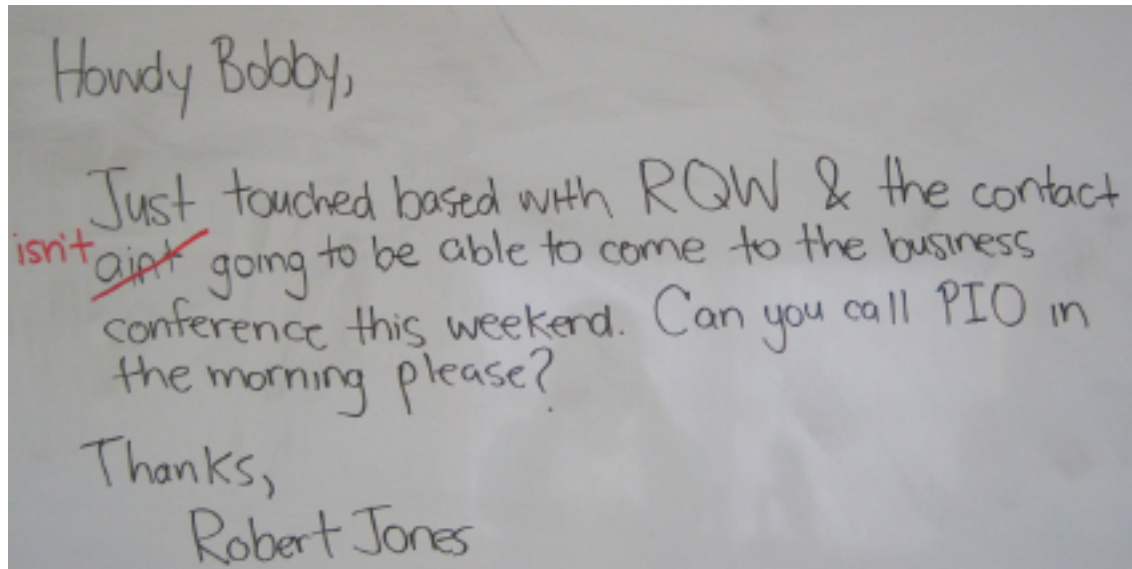 Howdy Bobby,
Just touched based with RQW & the contact
isn't aint going to be able to come to the business
conference this weekend. Can you call PIO in
the morning please?
Thanks,
Robert Jones